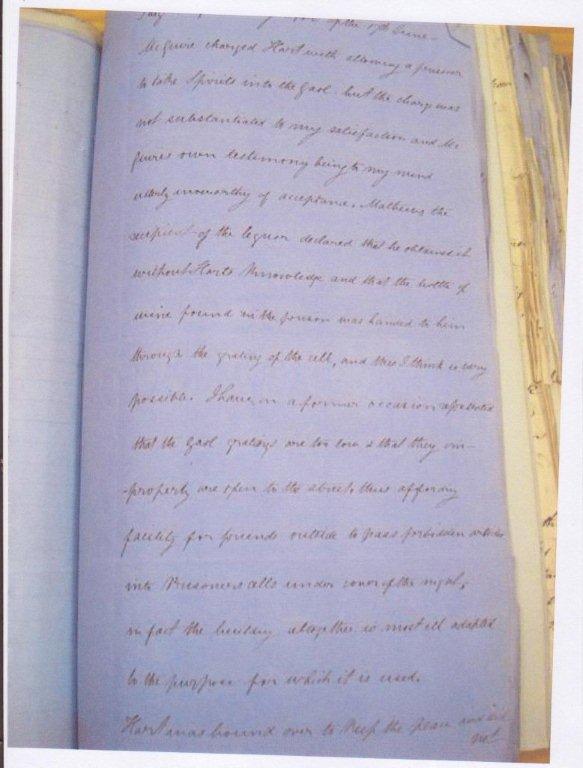 of the 19th June –
McGuire charged Hart with allowing a prisoner
to take Spirits into the gaol. but the charge was
not substantiated to my satisfaction and Mc
Guires own testimony being to my mind
utterly unworthy of acceptance. Mathews the
recipient of the liquor declared that he obtained it
without Harts Knowledge and that the bottle of
wine found in the prison was handed to him
through the grating of the cell, and this I think is very
possible. I have on a former occasion represented
that the Gaol gratings are too low & that they im-
-properly are open to the street, thus affording
facility for friends outside to pass forbidden articles
into Prisoners cells under cover of the night,
in fact the building altogether is most ill adapted
to the purpose for which it is used.
Hart was bound over to Keep the peace and did
not